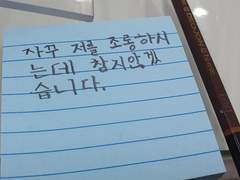 자꾸 저를 조롱하시
는데 참지않겠
습니다.